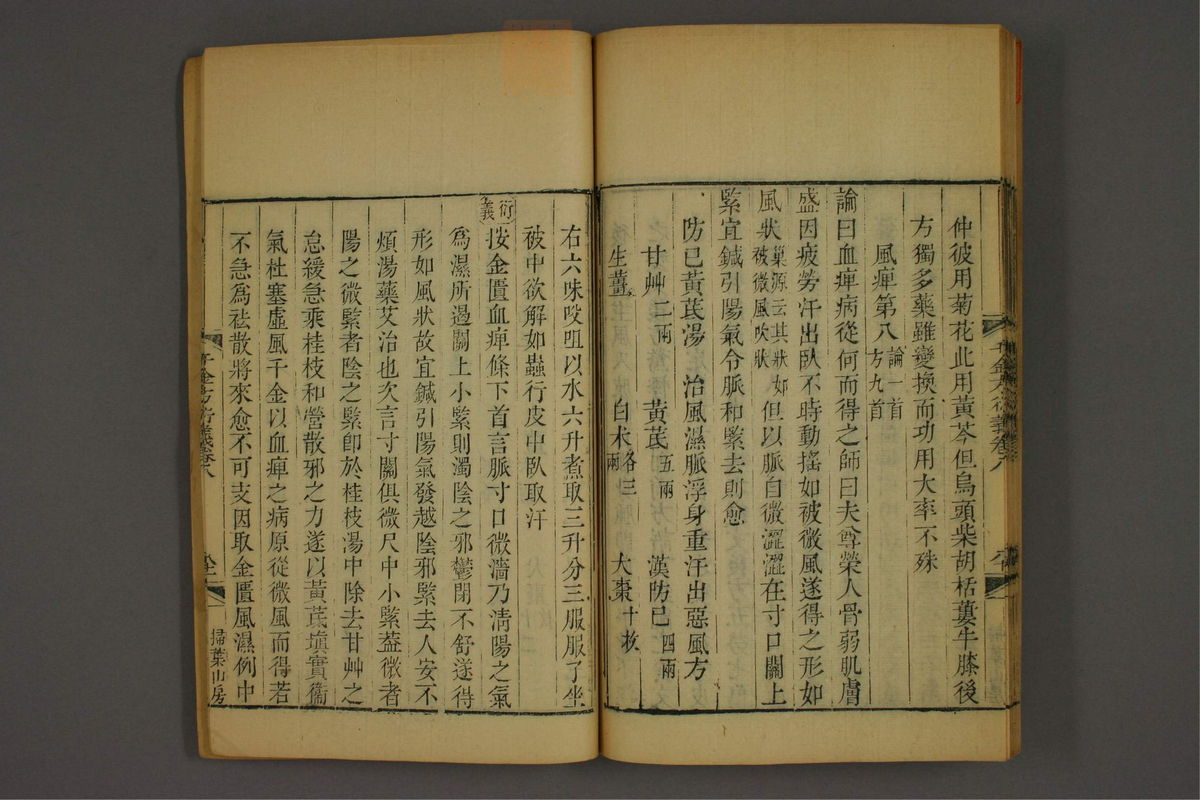 仲彼用菊花此用黃芩但烏頭柴胡栝蔞牛膝後
方獨多藥雖變換而功用大率不殊
風痺第八論一首方九首
論曰血痺病從何而得之師曰夫尊榮人骨弱肌膚
盛因疲勞汗出臥不時動搖如被微風遂得之形如
風狀巢源云其狀如被微風吹狀但以脈自微澀澀在寸口關上
緊宜鍼引陽氣令脈和緊去則愈
防已黃芪湯治風濕脈浮身重汗出惡風方
甘艸二兩 黃芪五兩 漢防已四兩
生薑 白朮各三兩 大棗十枚
千金方衍義卷八
右六味㕮咀以水六升煮取三升分三服服了坐
被中欲解如蟲行皮中臥取汗
衍義按金匱血痺條下首言脈寸口微濇乃淸陽之氣
為濕所遏關上小緊則濁陰之邪鬱閉不舒遂得
形如風狀故宜鍼引陽氣發越陰邪緊去人安不
煩湯藥艾治也次言寸關俱微尺中小緊葢微者
陽之微緊者陰之緊卽於桂枝湯中除去甘艸之
怠緩急乘桂枝和營散邪之力遂以黃芪塡實衞
氣杜塞虛風千金以血痺之病原從微風而得若
不急為祛散將來愈不可支因取金匱風濕例中
千金方衍義卷八
掃葉山房